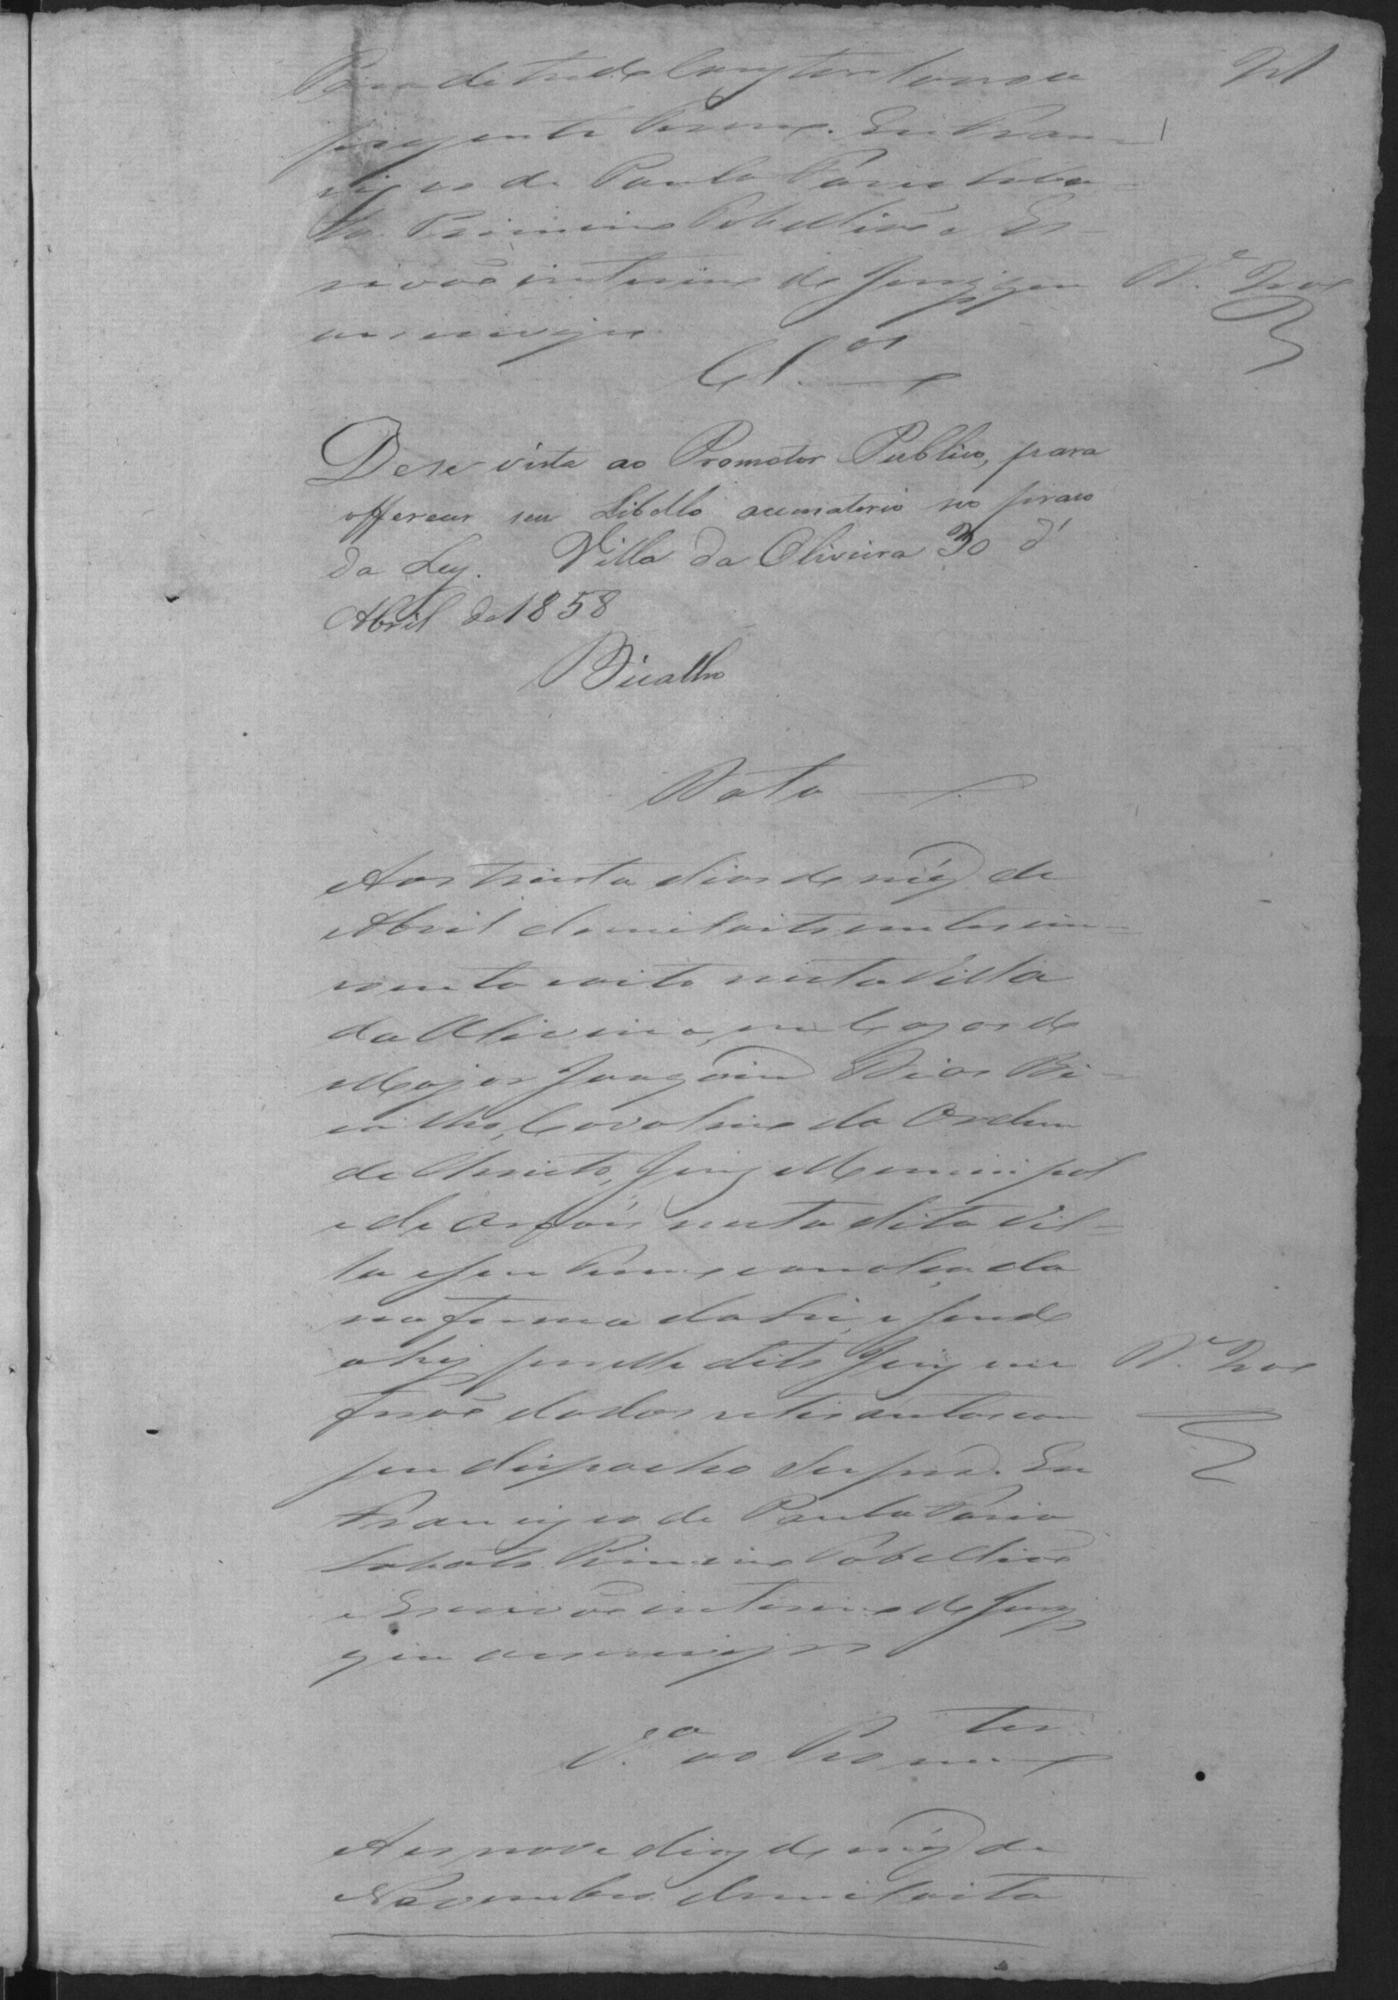 Para de tudo constar lavro o
prezente termo. Eu Fran-
cisco de Paula Faria Loba-
to Primeiro Tabellião e Es-
crivão interino do Jury que
o escrevi
Cl.os
Dese vista ao Promotor Publico, para
offerecer seu Libello accusatorio no praso
da Ley. Villa da Oliveira 30 d'
Abril de 1858
Bicalho
Data
Aos trinta dias do mez de
Abril de mil oito centos cin-
coenta e oito nesta Villa
da Oliveira, em Cazas do
Major Joaquim Dias Bi-
calho, Cavaleiro da Ordem
de Christo, Juiz Municipal
e de Orfãos nesta dita Vil-
la e seu Termo
na forma da Lei, e sendo
ahi por elle dito Juiz me
forão dados estes autos com
seu dispacho supra. Eu
Francisco de Paula Faria
Lobato Primeiro Tabellião
e Escrivão interino do Jury
que o escrevi
V.ta ao Promotor
Aos nove dias do mez de
Novembro de mil oito